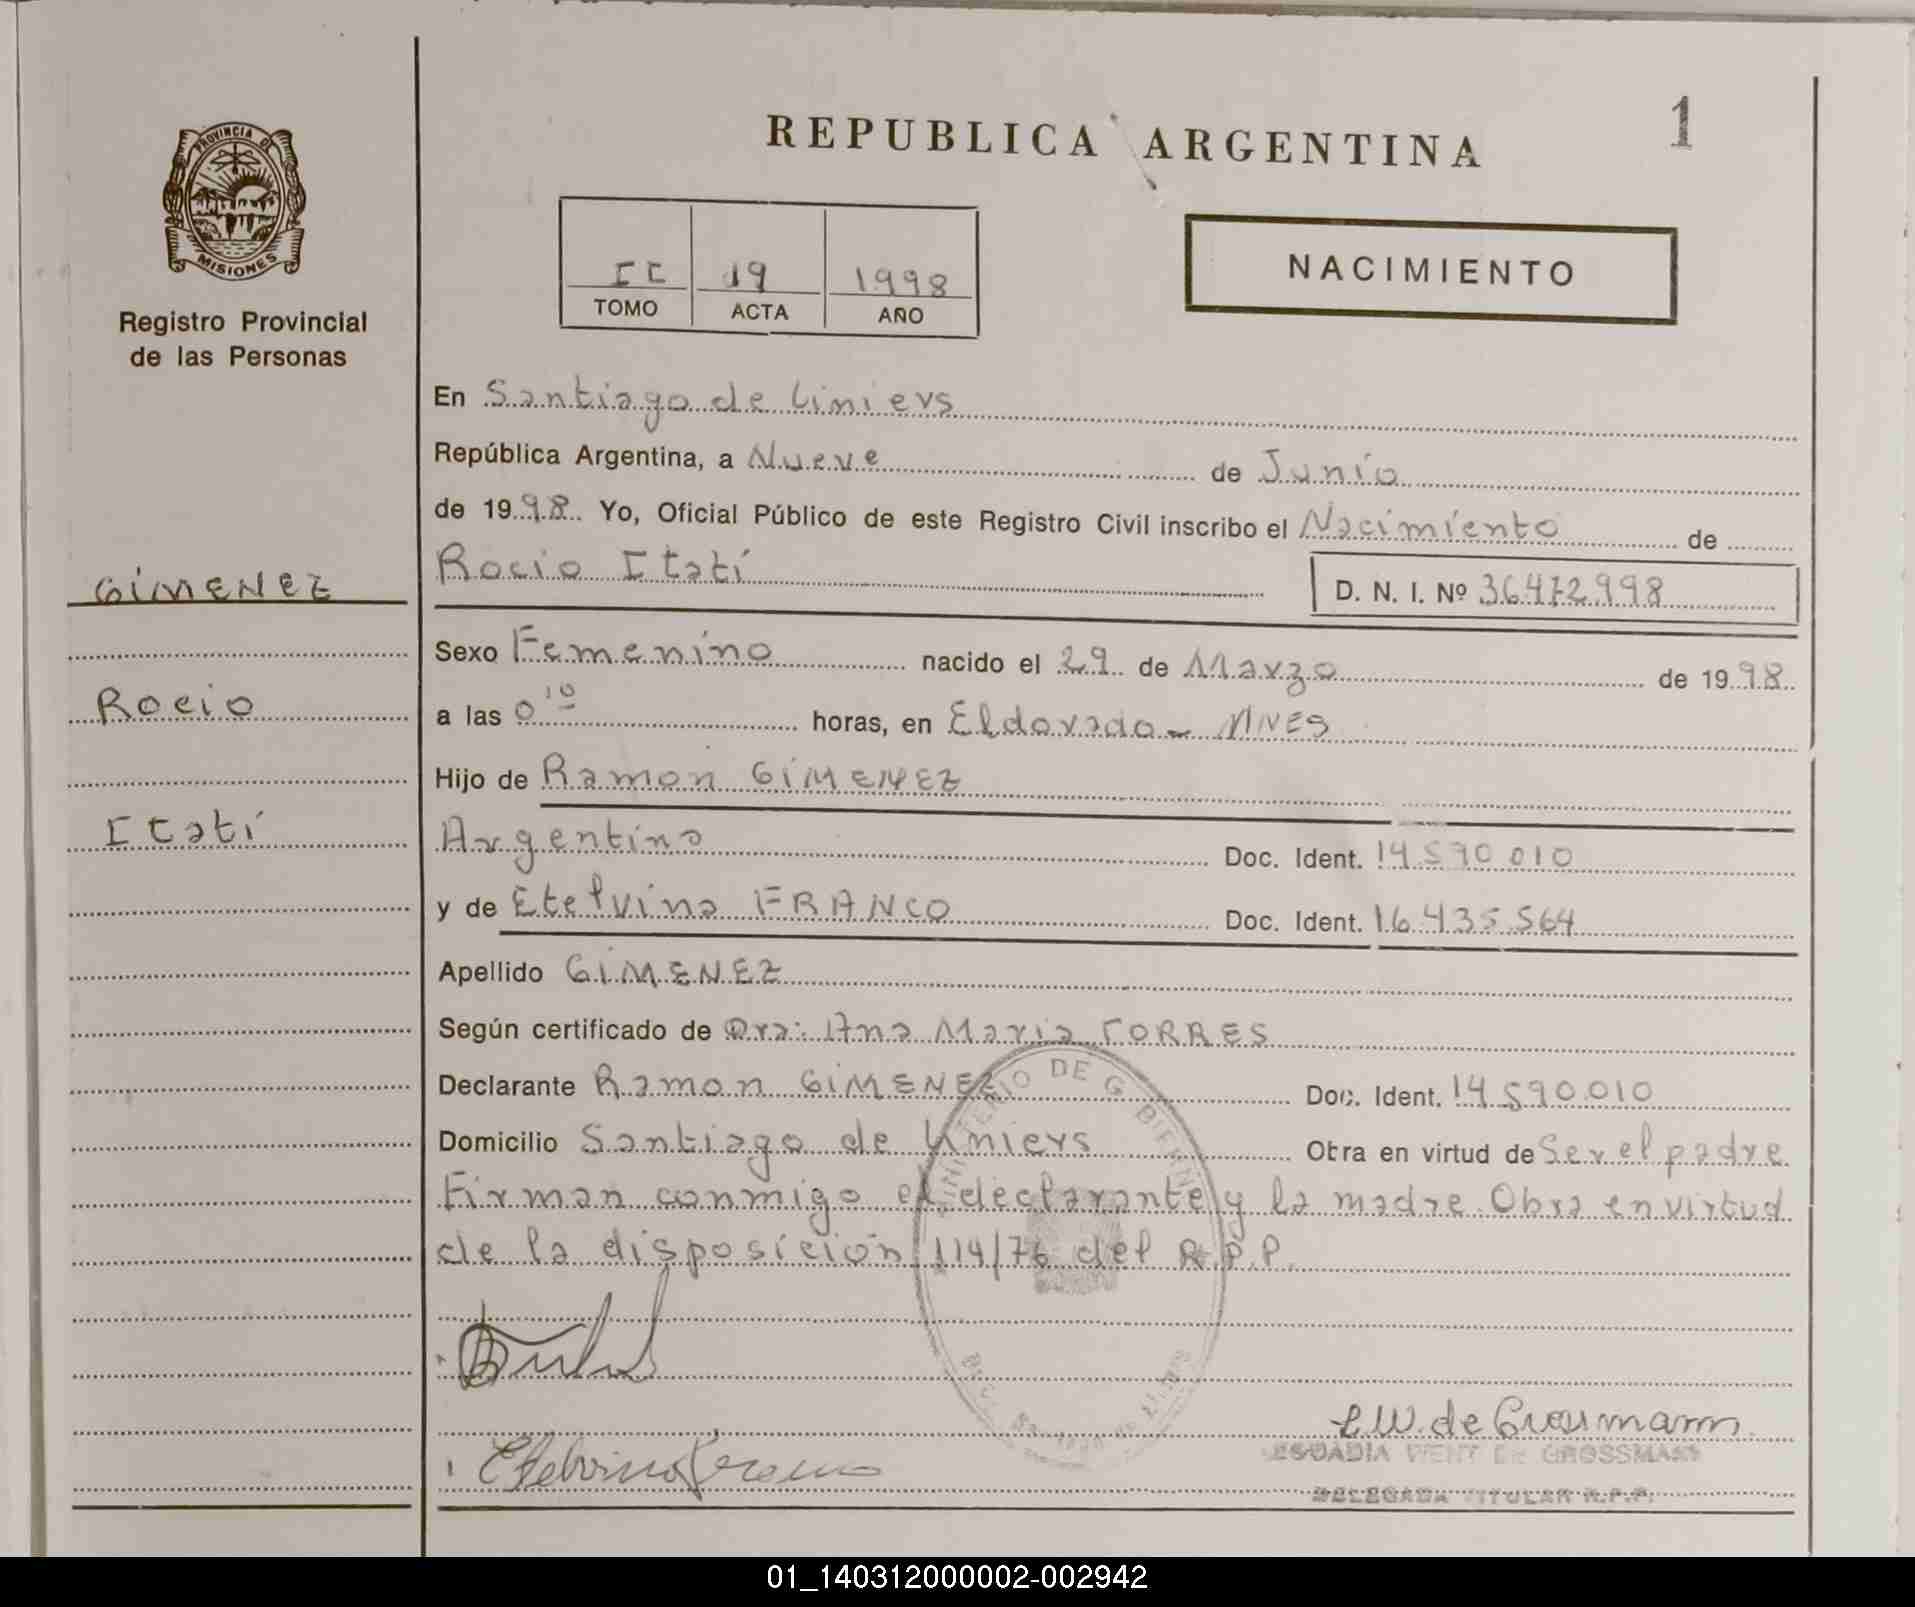 PROVINCIA DE
MISIONES
Registro Provincial
de las Personas
GIMENEZ
Rocio
Itatí
REPUBLICA ARGENTINA
1
II 19 1998
TOMO ACTA AÑO
NACIMIENTO
En Santiago de Liniers
República Argentina, a Nueve de Junio
de 1998 Yo, Oficial Público de este Registro Civil inscribo el Nacimiento de
Rocio Itatí D. N. I. Nº 36472998
Sexo Femenino nacido el 29 de Marzo de 1998
a las 0 10 horas, en Eldorado - MNES
Hijo de Ramon GIMENEZ
Argentino Doc. Ident. 14.590.010
y de Etelvina FRANCO Doc. Ident. 16.435.564
Apellido GIMENEZ
Según certificado de Dra: Ana Maria TORRES
Declarante Ramon GIMENEZ Doc. Ident. 14.590.010
Domicilio Santiago de Liniers Obra en virtud de Ser el padre
Firman conmigo el declarante y la madre. Obra en virtud
de la disposición 114/76 del R.P.P.
MINISTERIO DE GOBIERNO
Etelvina Franco
L W. de Grossmann
WENT DE GROSSMANN
DELEGADA TITULAR R.P.P.
01_140312000002-002942